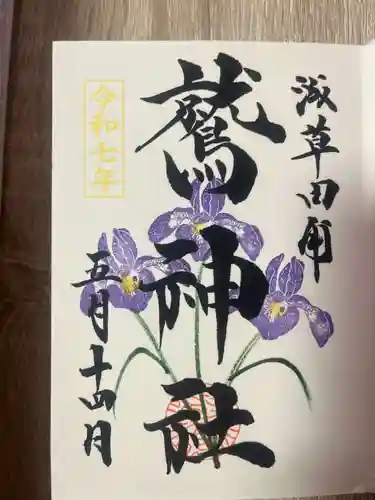 浅草田甫
鷲神社
令和七年
五月十四日